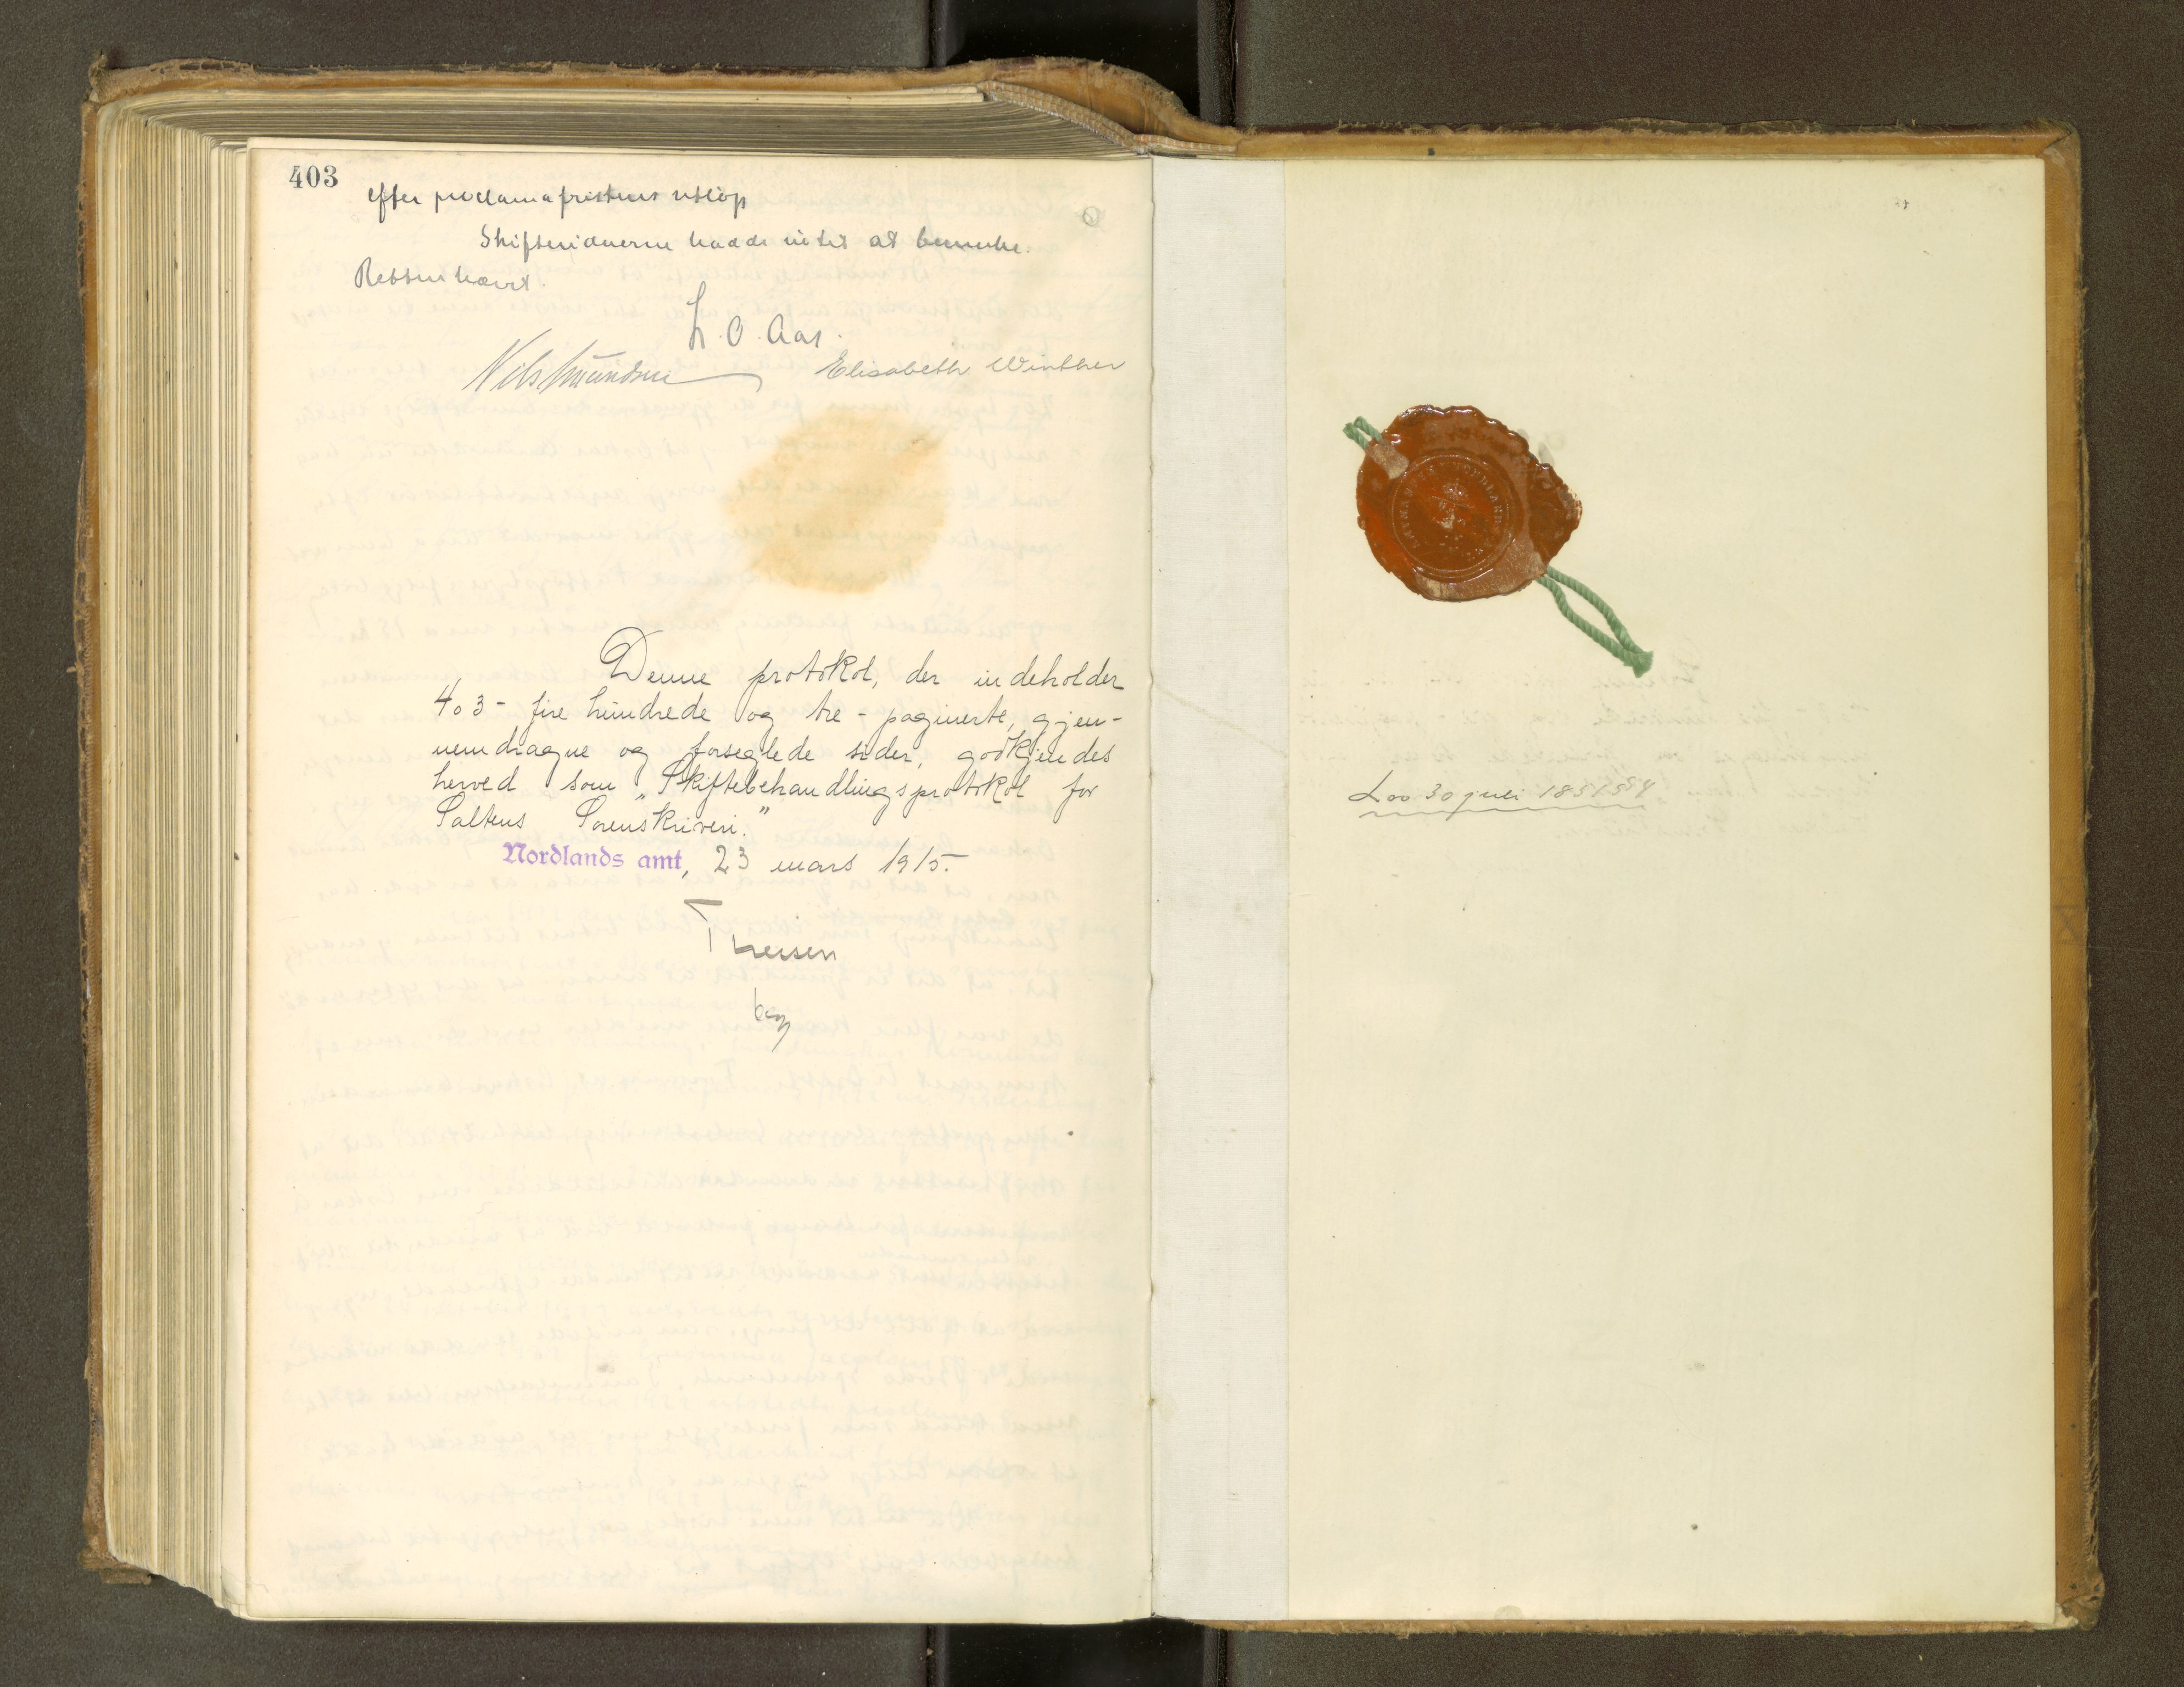 403
efter proclamafristens utløp
Skiftevidnerne hadde intet at bemerke.
Retten hævet.
L. O. Aas.
Elisabeth Winther
Denne protokol, der indeholder
403 - fire hundrede og tre - paginerte, gjen-
nemdragne og forseglede sider, godkjendes
herved som „Skiftebehandlingsprotokol for
Saltens Sorenskriveri.”
Nordlands amt, 23 mars 1915.
Theisen
Lov 30 juli 1851 §54